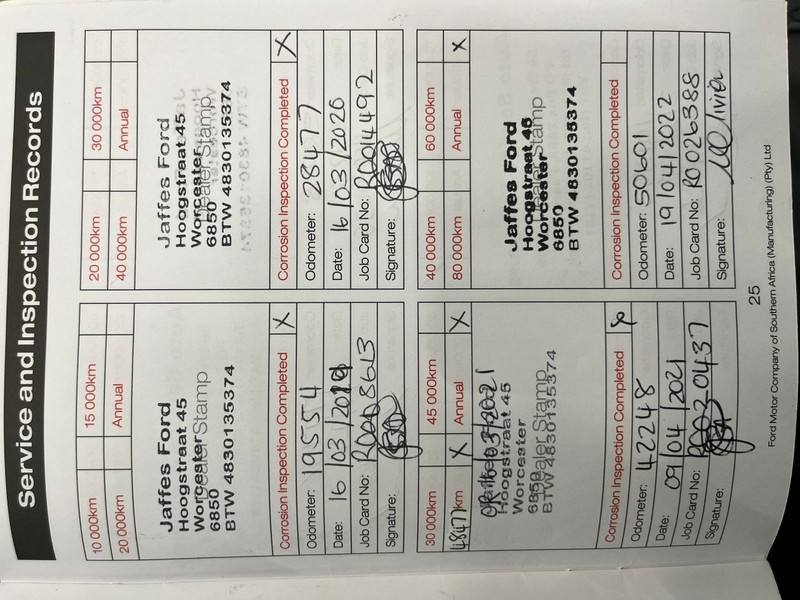 Service and Inspection Records
10 000km
15 000km
20 000km
Annual
Jaffes Ford
Hoogstraat 45
Worcester
Dealer Stamp
6850
BTW 4830135374
Corrosion Inspection Completed X
Odometer: 19554
Date: 16/03/2019
Job Card No: R0008613
Signature:
20 000km
30 000km
40 000km
Annual
Jaffes Ford
Hoogstraat 45
Worcester
Dealer Stamp
6850
BTW 4830135374
Corrosion Inspection Completed X
Odometer: 28477
Date: 16/03/2020
Job Card No: R0014492
Signature:
30 000km
45 000km
48477 km X
Annual X
16/03/2021
Hoogstraat 45
Worcester
Dealer Stamp
6850
BTW 4830135374
Corrosion Inspection Completed X
Odometer: 42248
Date: 09/04/2021
Job Card No: R0020437
Signature:
40 000km
60 000km
80 000km
Annual X
Jaffes Ford
Hoogstraat 45
Worcester
Dealer Stamp
6850
BTW 4830135374
Corrosion Inspection Completed
Odometer: 50601
Date: 19/04/2022
Job Card No: R0026388
Signature:
25
Ford Motor Company of Southern Africa (Manufacturing) (Pty) Ltd